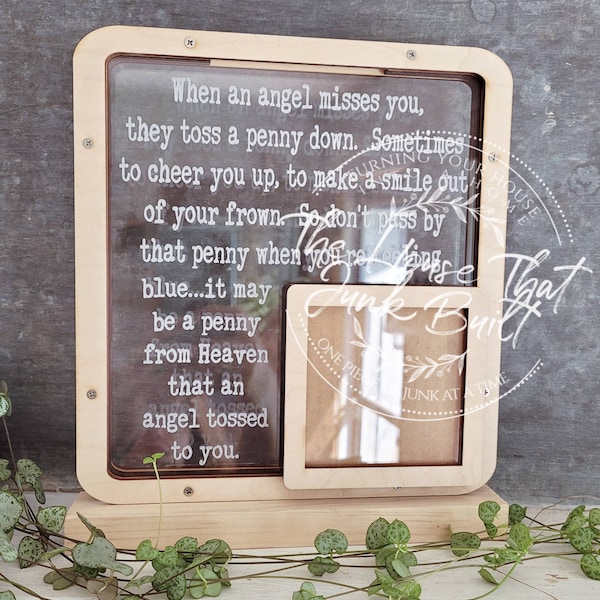 When an angel misses you,
they toss a penny down. Sometimes
to cheer you up, to make a smile out
of your frown. So don't pass by
that penny when you're feeling
blue...it may
be a penny
from Heaven
that an
angel tossed
to you.
TURNING YOUR HOUSE
A HOME
The House That
Junk Built
ONE PIECE JUNK AT A TIME